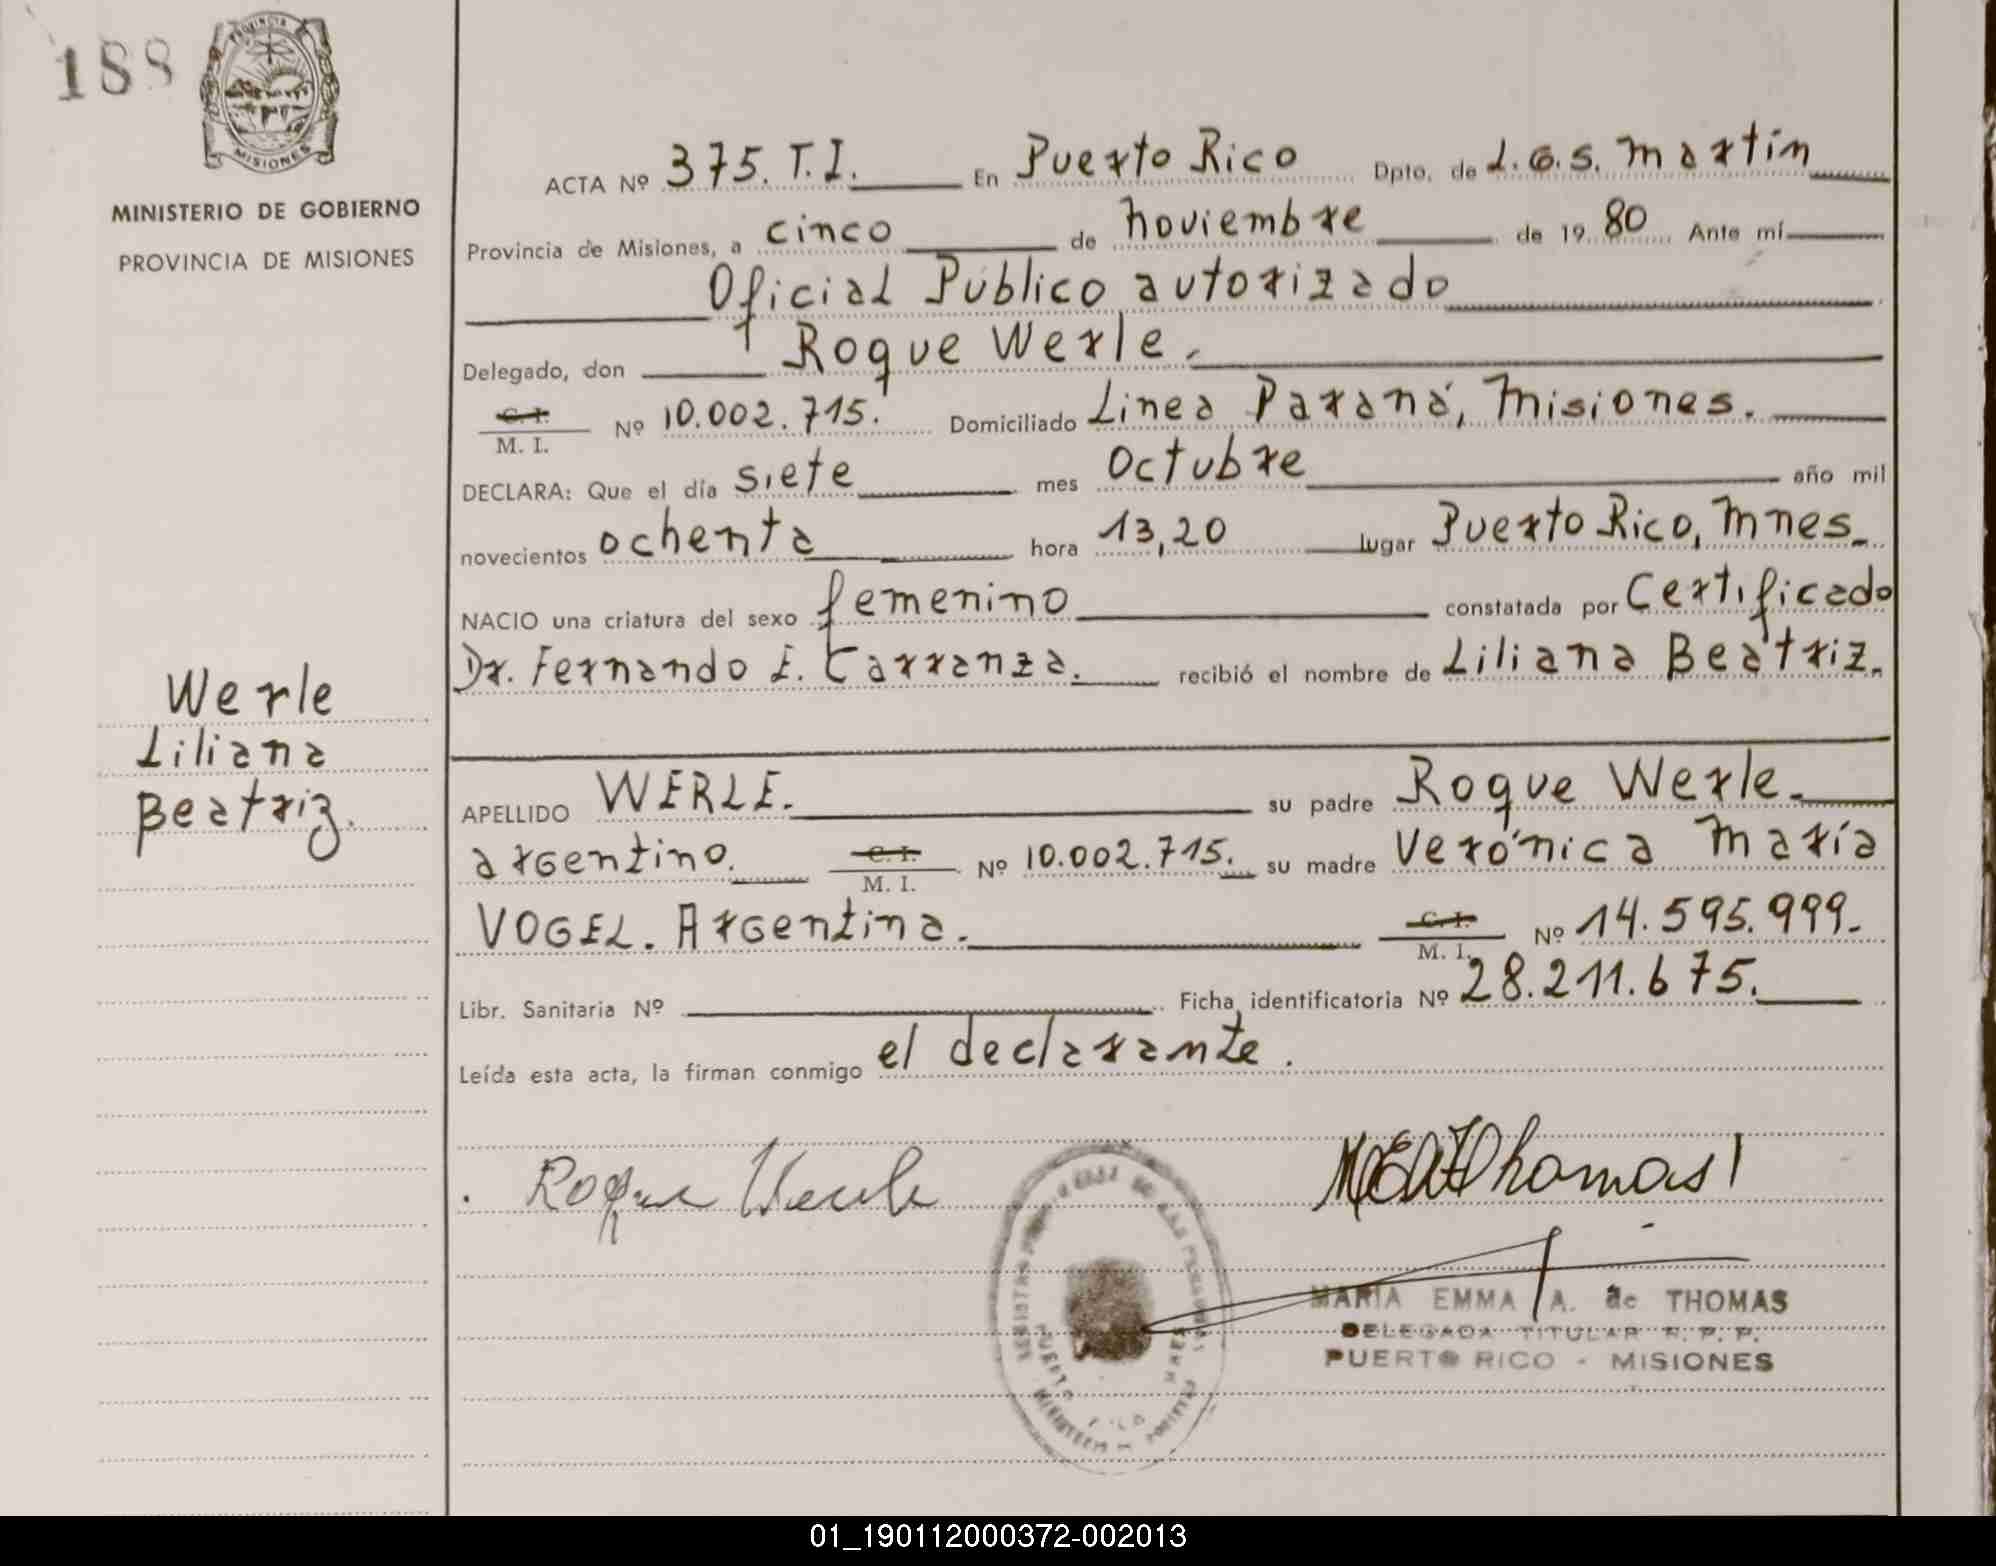 188
PROVINCIA
MISIONES
MINISTERIO DE GOBIERNO
PROVINCIA DE MISIONES
Werle
Liliana
Beatriz.
ACTA Nº 375. T.I. En Puerto Rico Dpto. de L.G.S. Martín
Provincia de Misiones, a cinco de noviembre de 19 80 Ante mí
Oficial Público autorizado
Delegado, don Roque Werle.
C. I.
M. I. Nº 10.002.715. Domiciliado Línea Paraná, Misiones.
DECLARA: Que el día siete mes octubre año mil
novecientos ochenta hora 13,20 lugar Puerto Rico, Mnes.
NACIO una criatura del sexo femenino constatada por Certificado
Dr. Fernando E. Carranza. recibió el nombre de Liliana Beatriz.
APELLIDO WERLE. su padre Roque Werle.
argentino. C. I. M. I. Nº 10.002.715. su madre Verónica María
VOGEL. Argentina. C. I. M. I. Nº 14.595.999.
Libr. Sanitaria Nº Ficha identificatoria Nº 28.211.675.
Leída esta acta, la firman conmigo el declarante.
Roque Werle
Thomas
MARIA EMMA A. de THOMAS
DELEGADA TITULAR R. P. P.
PUERTO RICO - MISIONES
01_190112000372-002013